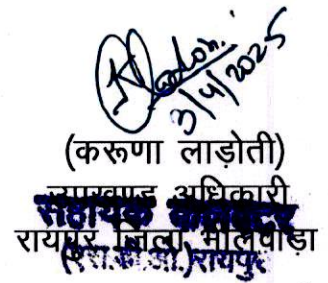 3/4/2025
(करूणा लाड़ोती)
उपखण्ड अधिकारी
सहायक कलेक्टर
रायपुर जिला भीलवाड़ा
(एस.डी.ओ.) रायपुर